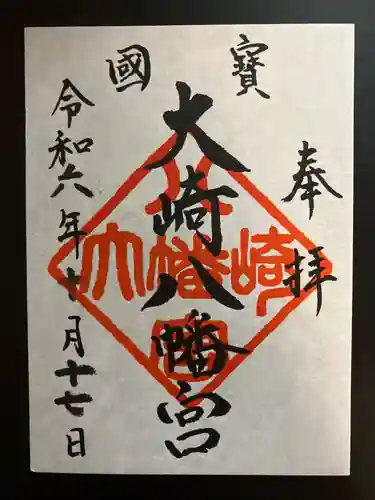 國寶
奉拝
大崎八幡宮
令和六年十月十七日
大崎八幡宮